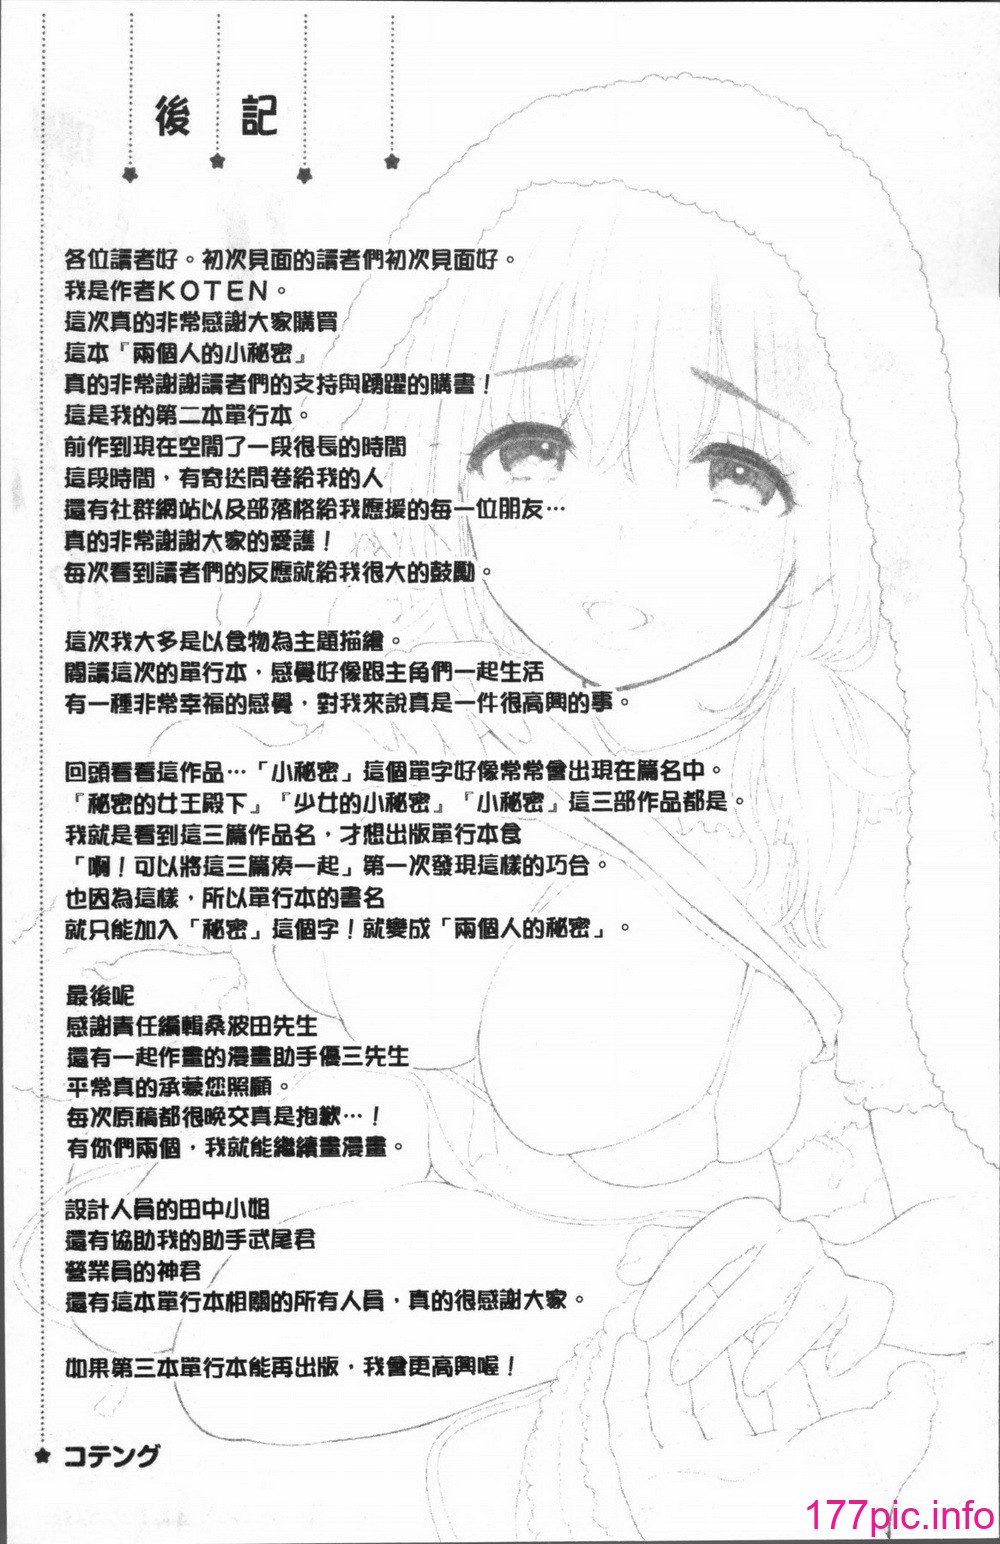 後記
各位讀者好。初次見面的讀者們初次見面好。
我是作者KOTEN。
這次真的非常感謝大家購買
這本『兩個人的小秘密』
真的非常謝謝讀者們的支持與踴躍的購書！
這是我的第二本單行本。
前作到現在空閒了一段很長的時間
這段時間，有寄送問卷給我的人
還有社群網站以及部落格給我應援的每一位朋友…
真的非常謝謝大家的愛護！
每次看到讀者們的反應就給我很大的鼓勵。
這次我大多是以食物為主題描繪。
閱讀這次的單行本，感覺好像跟主角們一起生活
有一種非常幸福的感覺，對我來說真是一件很高興的事。
回頭看看這作品…「小秘密」這個單字好像常常會出現在篇名中。
『秘密的女王殿下』『少女的小秘密』『小秘密』這三部作品都是。
我就是看到這三篇作品名，才想出版單行本食
「啊！可以將這三篇湊一起」第一次發現這樣的巧合。
也因為這樣，所以單行本的書名
就只能加入「秘密」這個字！就變成「兩個人的秘密」。
最後呢
感謝責任編輯桑波田先生
還有一起作畫的漫畫助手優三先生
平常真的承蒙您照顧。
每次原稿都很晚交真是抱歉…！
有你們兩個，我就能繼續畫漫畫。
設計人員的田中小姐
還有協助我的助手武尾君
營業員的神君
還有這本單行本相關的所有人員，真的很感謝大家。
如果第三本單行本能再出版，我會更高興喔！
コテング
177pic.info